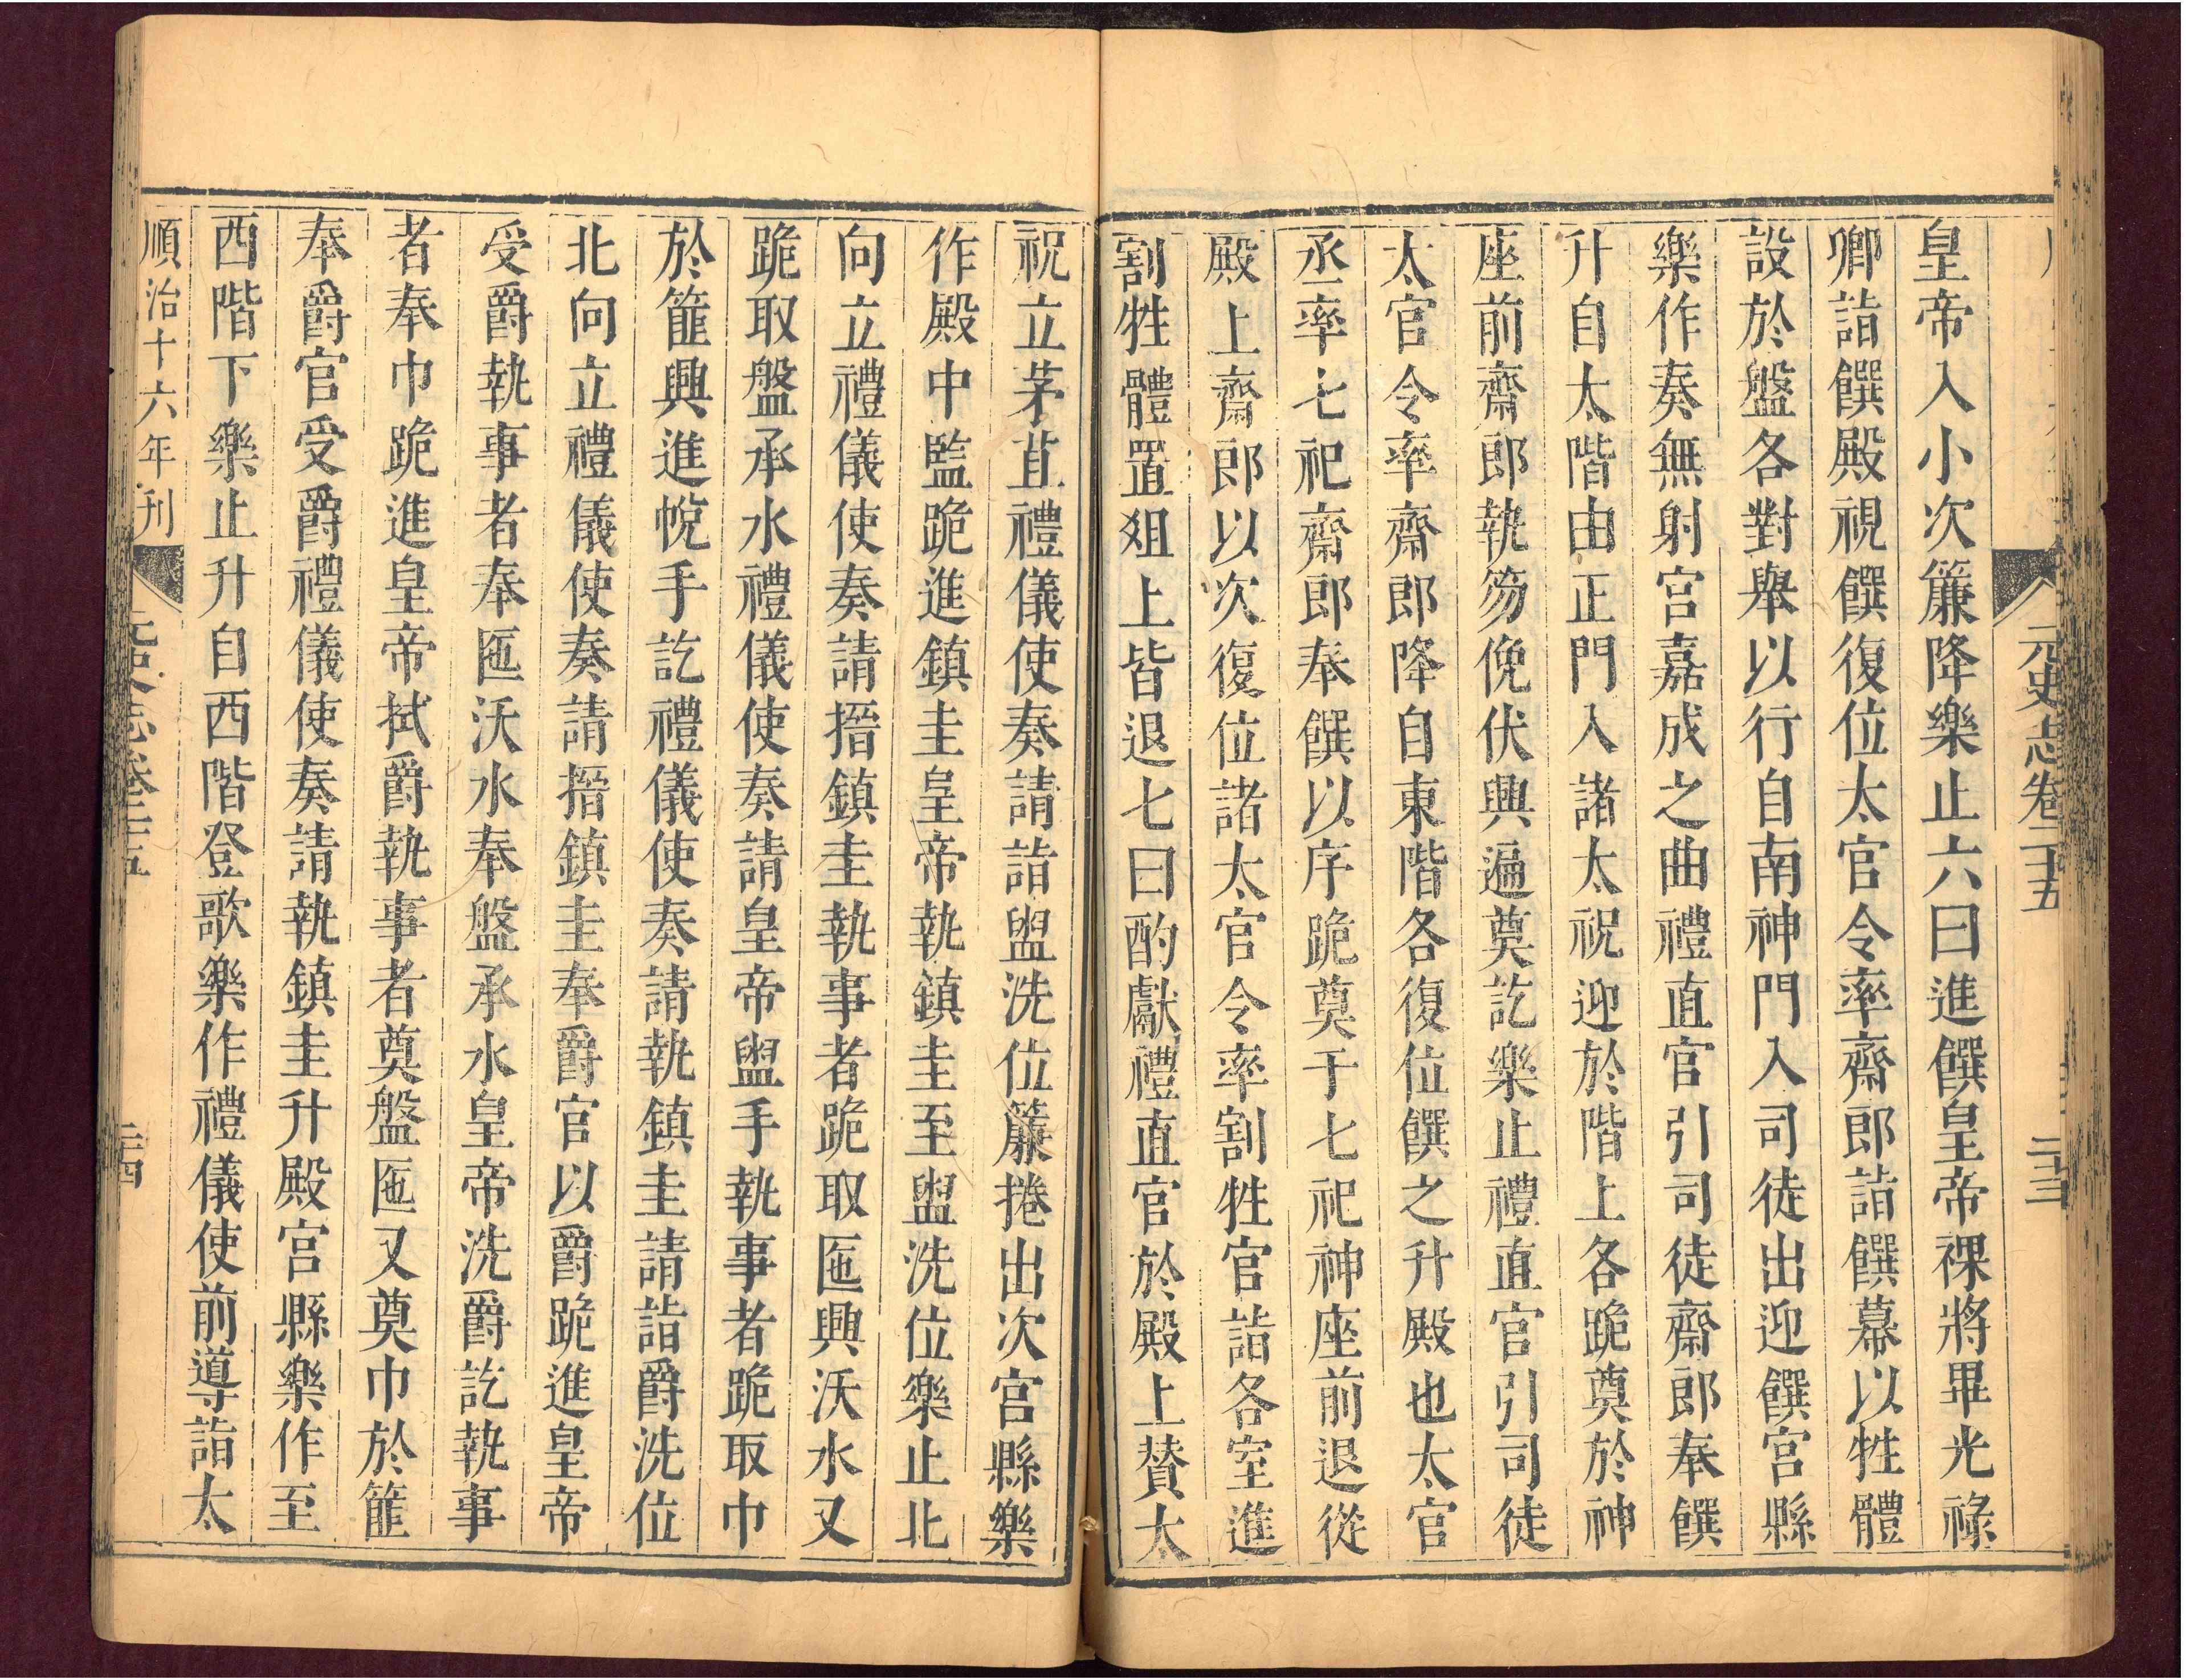 元史志卷二十五
二十三
皇帝入小次簾降樂止六曰進饌皇帝祼將畢光祿
卿詣饌殿視饌復位太官令率齋郎詣饌幕以牲體
設於盤各對舉以行自南神門入司徒出迎饌宮縣
樂作奏無射宮嘉成之曲禮直官引司徒齋郎奉饌
升自太階由正門入諸太祝迎於階上各跪奠於神
座前齋郎執笏俛伏興遍奠訖樂止禮直官引司徒
太官令率齋郎降自東階各復位饌之升殿也太官
丞率七祀齋郎奉饌以序跪奠于七祀神座前退從
殿上齋郎以次復位諸太官令率割牲官詣各室進
割牲體置俎上皆退七曰酌獻禮直官於殿上贊太
祝立茅苴禮儀使奏請詣盥洗位簾捲出次宮縣樂
作殿中監跪進鎮圭皇帝執鎮圭至盥洗位樂止北
向立禮儀使奏請搢鎮圭執事者跪取匜興沃水又
跪取盤承水禮儀使奏請皇帝盥手執事者跪取巾
於篚興進帨手訖禮儀使奏請執鎮圭請詣爵洗位
北向立禮儀使奏請搢鎮圭奉爵官以爵跪進皇帝
受爵執事者奉匜沃水奉盤承水皇帝洗爵訖執事
者奉巾跪進皇帝拭爵執事者奠盤匜又奠巾於篚
奉爵官受爵禮儀使奏請執鎮圭升殿宮縣樂作至
西階下樂止升自西階登歌樂作禮儀使前導詣太
順治十六年刊
元史志卷二十五
二十四